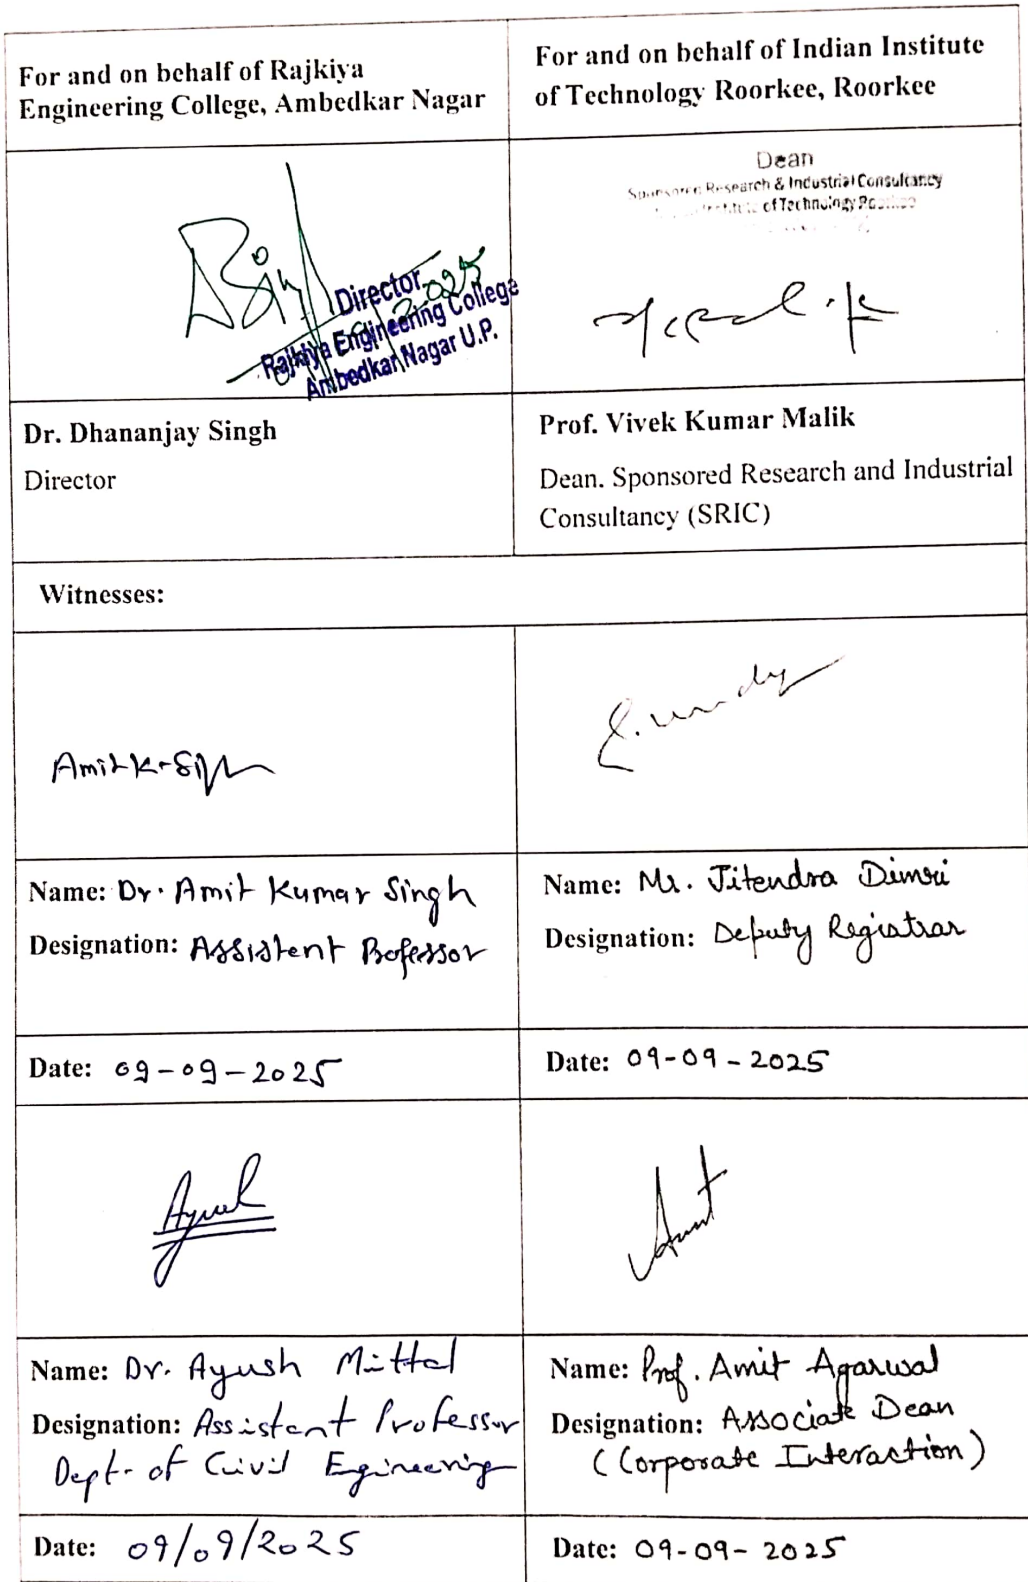 For and on behalf of Rajkiya
Engineering College, Ambedkar Nagar
For and on behalf of Indian Institute
of Technology Roorkee, Roorkee
Director
Rajkiya Engineering College
Ambedkar Nagar U.P.
Dean
Sponsored Research & Industrial Consultancy
of Technology Roorkee
Dr. Dhananjay Singh
Director
Prof. Vivek Kumar Malik
Dean. Sponsored Research and Industrial
Consultancy (SRIC)
Witnesses:
Amit K. Singh
Name: Dr. Amit Kumar Singh
Designation: Assistent Professor
Name: Mr. Jitendra Dimri
Designation: Deputy Registrar
Date: 09-09-2025
Date: 09-09-2025
Ayush
Amit
Name: Dr. Ayush Mittal
Designation: Assistant Professor
Dept. of Civil Engineering
Name: Prof. Amit Agarwal
Designation: Associate Dean
(Corporate Interaction)
Date: 09/09/2025
Date: 09-09-2025